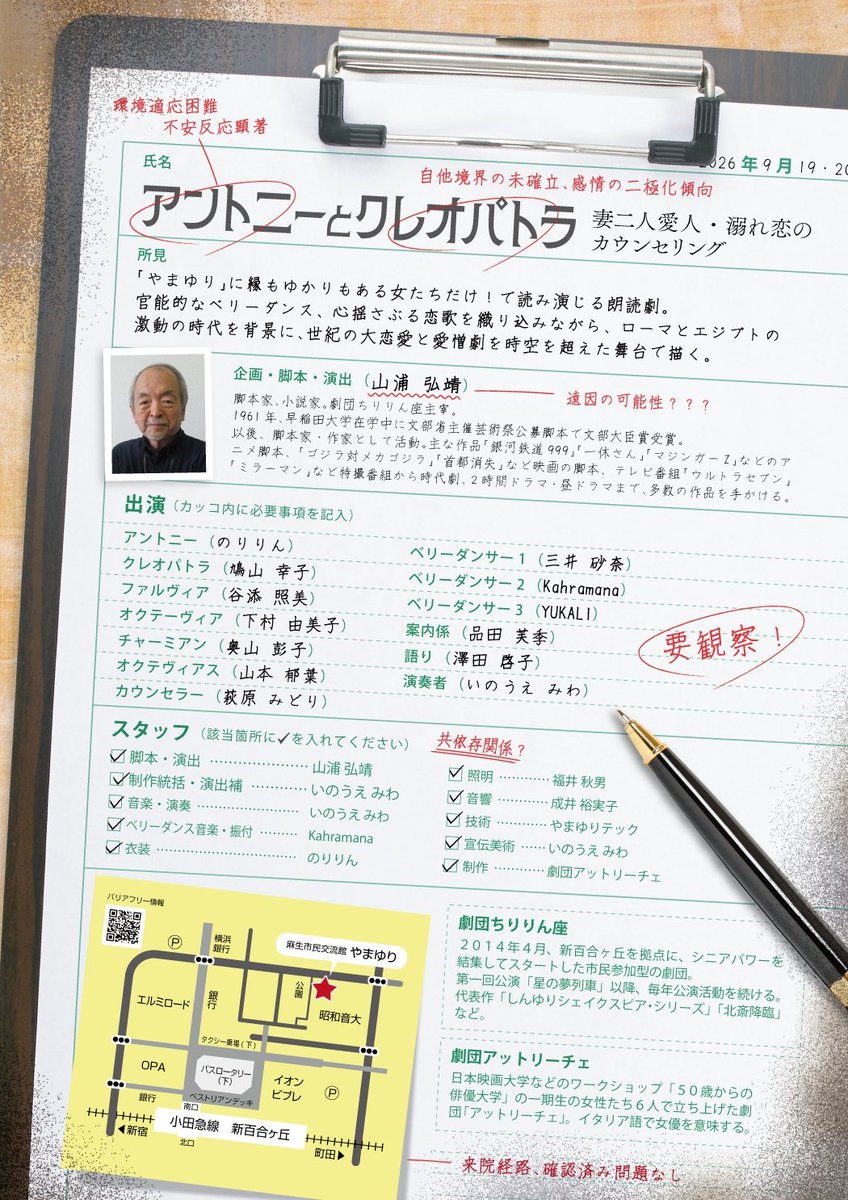 環境適応困難
不安反応顕著
2026年9月19・20
氏名
自他境界の未確立、感情の二極化傾向
アントニーとクレオパトラ
妻二人愛人・溺れ恋の
カウンセリング
所見
「やまゆり」に縁もゆかりもある女たちだけ!で読み演じる朗読劇。
官能的なベリーダンス、心揺さぶる恋歌を織り込みながら、ローマとエジプトの
激動の時代を背景に、世紀の大恋愛と愛憎劇を時空を超えた舞台で描く。
企画・脚本・演出(山浦 弘靖)
遠因の可能性???
脚本家、小説家。劇団ちりりん座主宰。
1961年、早稲田大学在学中に文部省主催芸術祭公募脚本で文部大臣賞受賞。
以後、脚本家・作家として活動。主な作品「銀河鉄道999」「一休さん」「マジンガーZ」などのア
ニメ脚本、「ゴジラ対メカゴジラ」「首都消失」など映画の脚本、テレビ番組「ウルトラセブン」
「ミラーマン」など特撮番組から時代劇、2時間ドラマ・昼ドラマまで、多数の作品を手がける。
出演(カッコ内に必要事項を記入)
アントニー(のりりん)
クレオパトラ(鳩山 幸子)
ファルヴィア(谷添 照美)
オクテーヴィア(下村 由美子)
チャーミアン(奥山 彭子)
オクテヴィアス(山本 郁葉)
カウンセラー(萩原 みどり)
ベリーダンサー1(三井 砂奈)
ベリーダンサー2(Kahramana)
ベリーダンサー3(YUKALI)
案内係(品田 芙季)
語り(澤田 啓子)
演奏者(いのうえ みわ)
要観察!
スタッフ(該当箇所に✓を入れてください)
脚本・演出 ………………… 山浦 弘靖
制作統括・演出補 ………… いのうえ みわ
音楽・演奏 ………………… いのうえ みわ
ベリーダンス音楽・振付 ……… Kahramana
衣装 ………………………… のりりん
共依存関係?
照明 ………… 福井 秋男
音響 ………… 成井 裕実子
技術 ………… やまゆりテック
宣伝美術 …… いのうえ みわ
制作 ………… 劇団アットリーチェ
バリアフリー情報
P
横浜
銀行
麻生市民交流館 やまゆり
公園
エルミロード
銀行
昭和音大
タクシー乗場(下)
OPA
バスロータリー
(下)
イオン
ビブレ
P
銀行
ペストリアンデッキ
南口
小田急線 新百合ヶ丘
◀新宿
北口
町田▶
劇団ちりりん座
2014年4月、新百合ヶ丘を拠点に、シニアパワーを
結集してスタートした市民参加型の劇団。
第一回公演「星の夢列車」以降、毎年公演活動を続ける。
代表作「しんゆりシェイクスピア・シリーズ」「北斎降臨」
など。
劇団アットリーチェ
日本映画大学などのワークショップ「50歳からの
俳優大学」の一期生の女性たち6人で立ち上げた劇
団「アットリーチェ」。イタリア語で女優を意味する。
来院経路、確認済み問題なし